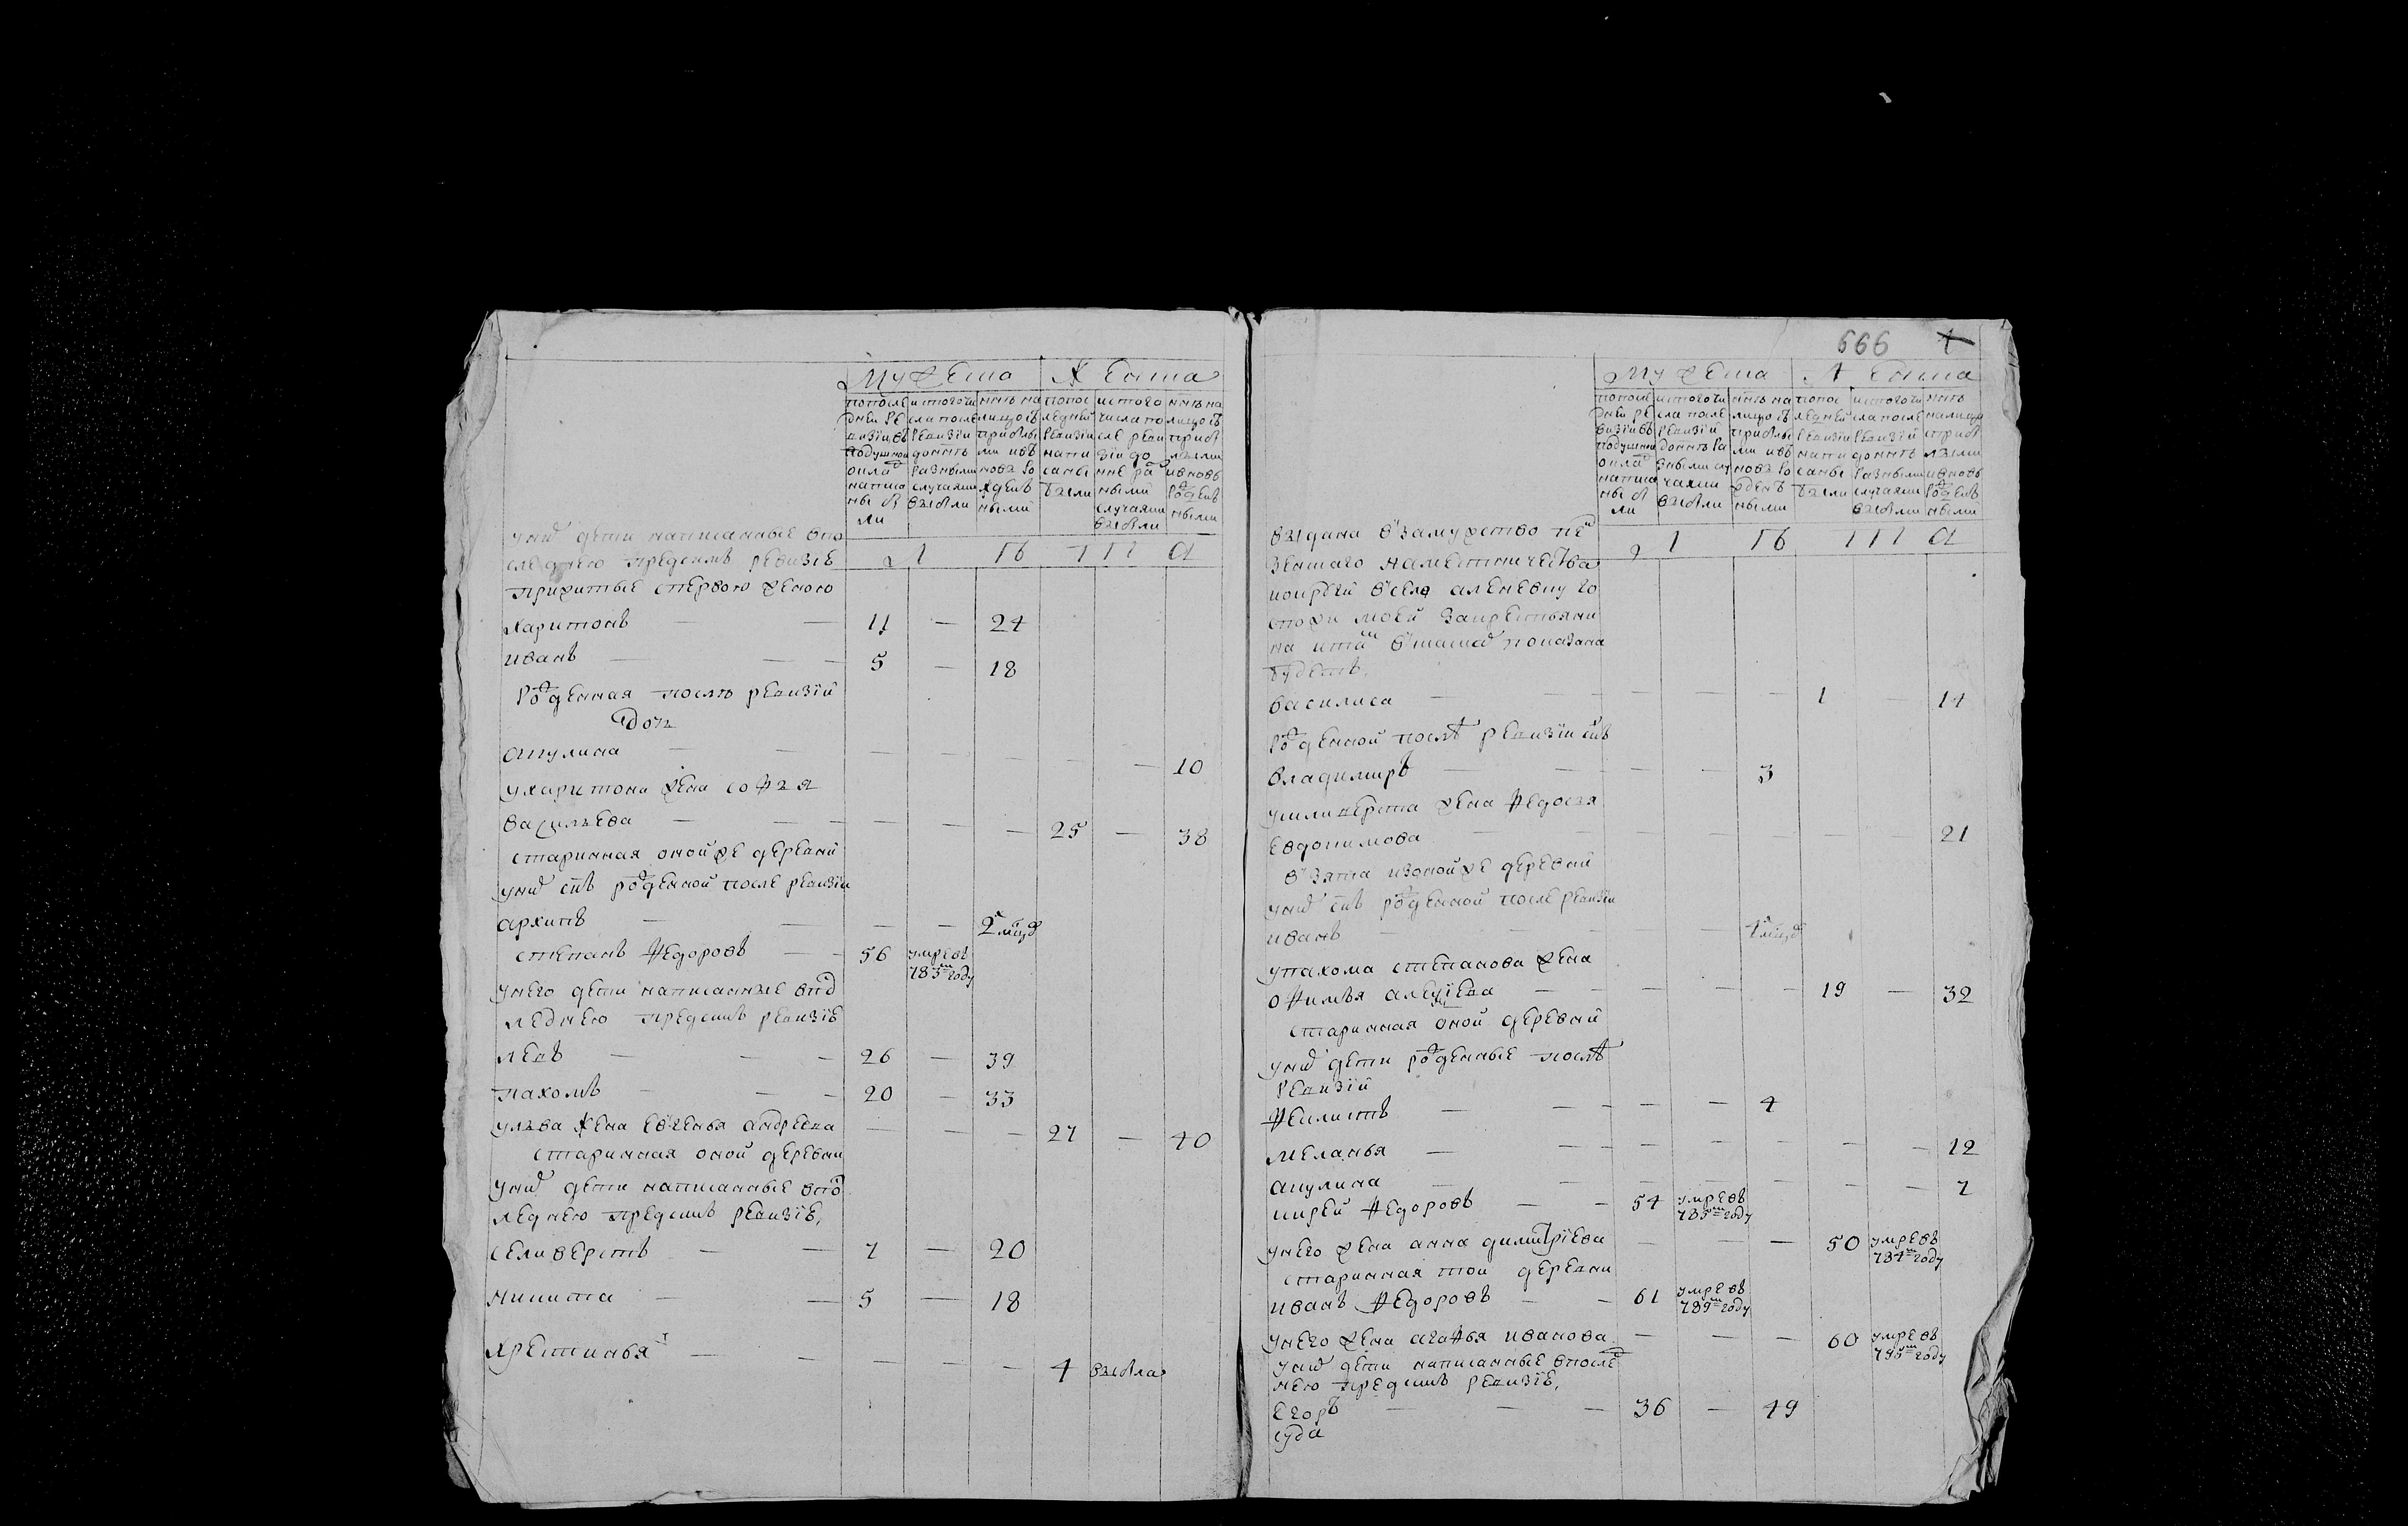 Мужеска Женска
попосле дней ревизiи въ подушной окладъ написаны были
исъ того числа после ревизiи до ннѣ разными случаями выбыли
ннѣ на лицо съ прибылыми и въ новь рожденными
попоследней ревизiи написаны были
ис того числа после ревизiи до нне разными случаями выбыли
ннѣ на лицо съ прибылыми и вновь рожденными
у ниⷯ дети написанные впо
следнею пред симъ ревизiе
прижитые с первою женою
Харитонъ — — 11 — 24
иванъ — — 5 — 18
рожденная послѣ ревизiи
дочь
акулина — — — — — — — 10
у харитона жена софья
васильева — — — — — 25 — 38
старинная оной же деревни
у ниⷯ снъ рожденной после ревизiи
архипъ — — — — 2 мцⷭа
степанъ Федоровъ — — 56 умре въ 783м году
у него дети написанные впос
леднею пред симъ ревизiе
левъ — — 26 — 39
пахомъ — — 20 — 33
у льва жена евгенья андреева — — — 27 — 40
старинная оной деревни
у ниⷯ дети написанные впос
леднею пред симъ ревизiе,
селиверстъ — — 7 — 20
никита — — 5 — 18
Хрестинья — — — — — 4 выбыла
666 4
Мужеска Женска
попосле дней ревизiи въ подушной окладъ написаны были
ис того числа после ревизiи до ннѣ разными случаями выбыли
ннѣ на лицо съ прибылыми и въ новь рожденными
попоследней ревизiи написаны были
ис того числа после ревизiи до ннѣ разными случаями выбыли
ннѣ на лицо с прибылыми и вновь рожденными
выдана в замужство пен
зенскаго наместничества
в село алексевку го
спожи моей за крестьяни
на показана
будетъ,
василиса — — — — — 1 — 14
рожденной послѣ ревизiи снъ
владимиръ — — — — 3
у силиверста жена Федосья
евдокимова — — — — — 21
взята из оной же деревни
у ниⷯ снъ рожденной после ревизiи
иванъ — — — — 4 мцⷭа
у пахома степанова жена
офимья алексiева — — — — — 19 — 32
старинная оной деревни
у ниⷯ дети рожденные послѣ
ревизiи
Филипъ — — — — — 4
меланья — — — — — — — 12
акулина — — — — — — — 7
кирей Федоровъ — — 54 умре въ 785м году
у него жена анна димитрiева — — — 50 умре въ 784м году
старинная той деревни
иванъ Федоровъ — — 61 умре въ 789м году
у него жена агафья иванова — — — 60 умре въ 795м году
у ниⷯ дети написанные в послед
нею пред симъ ревизiе,
егоръ — — — 36 — 49
суда